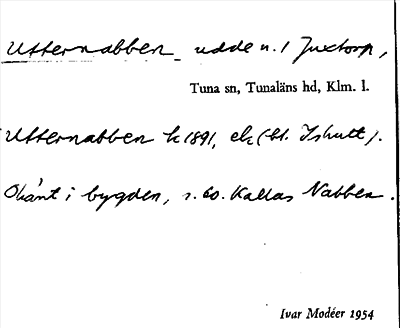 Utternabben, udde n. l Juxtorp,
Tuna sn, Tunaläns hd, Klm. l.
Utternabben k 1891, ek (bl. Ishult).
Okänt i bygden, s. so. kallas Nabben.
Ivar Modéer 1954